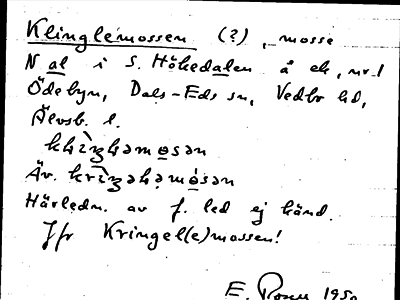 Klinglemossen (?), mosse
N al i S. Hökedalen å ek, nr 1
Ödebyn, Dals-Eds sn, Vedbo hd,
Älvsb. l.
Äv.
Härledn. av f. led ej känd.
Jfr Kringel(e)mossen!
E. Rosen 1950